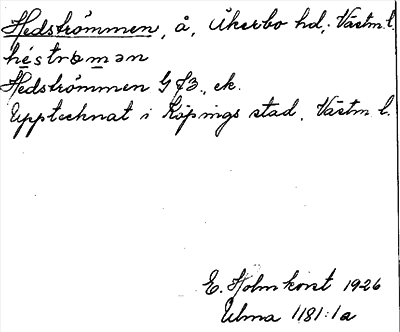 Hedströmmen, å, Åkerbo hd, Västm. l.
héstrøman
Hedströmmen G§3., ek.
Upptecknat i Köpings stad, Västm. l.
E. Holmkvist 1926
Ulma 1181:1a